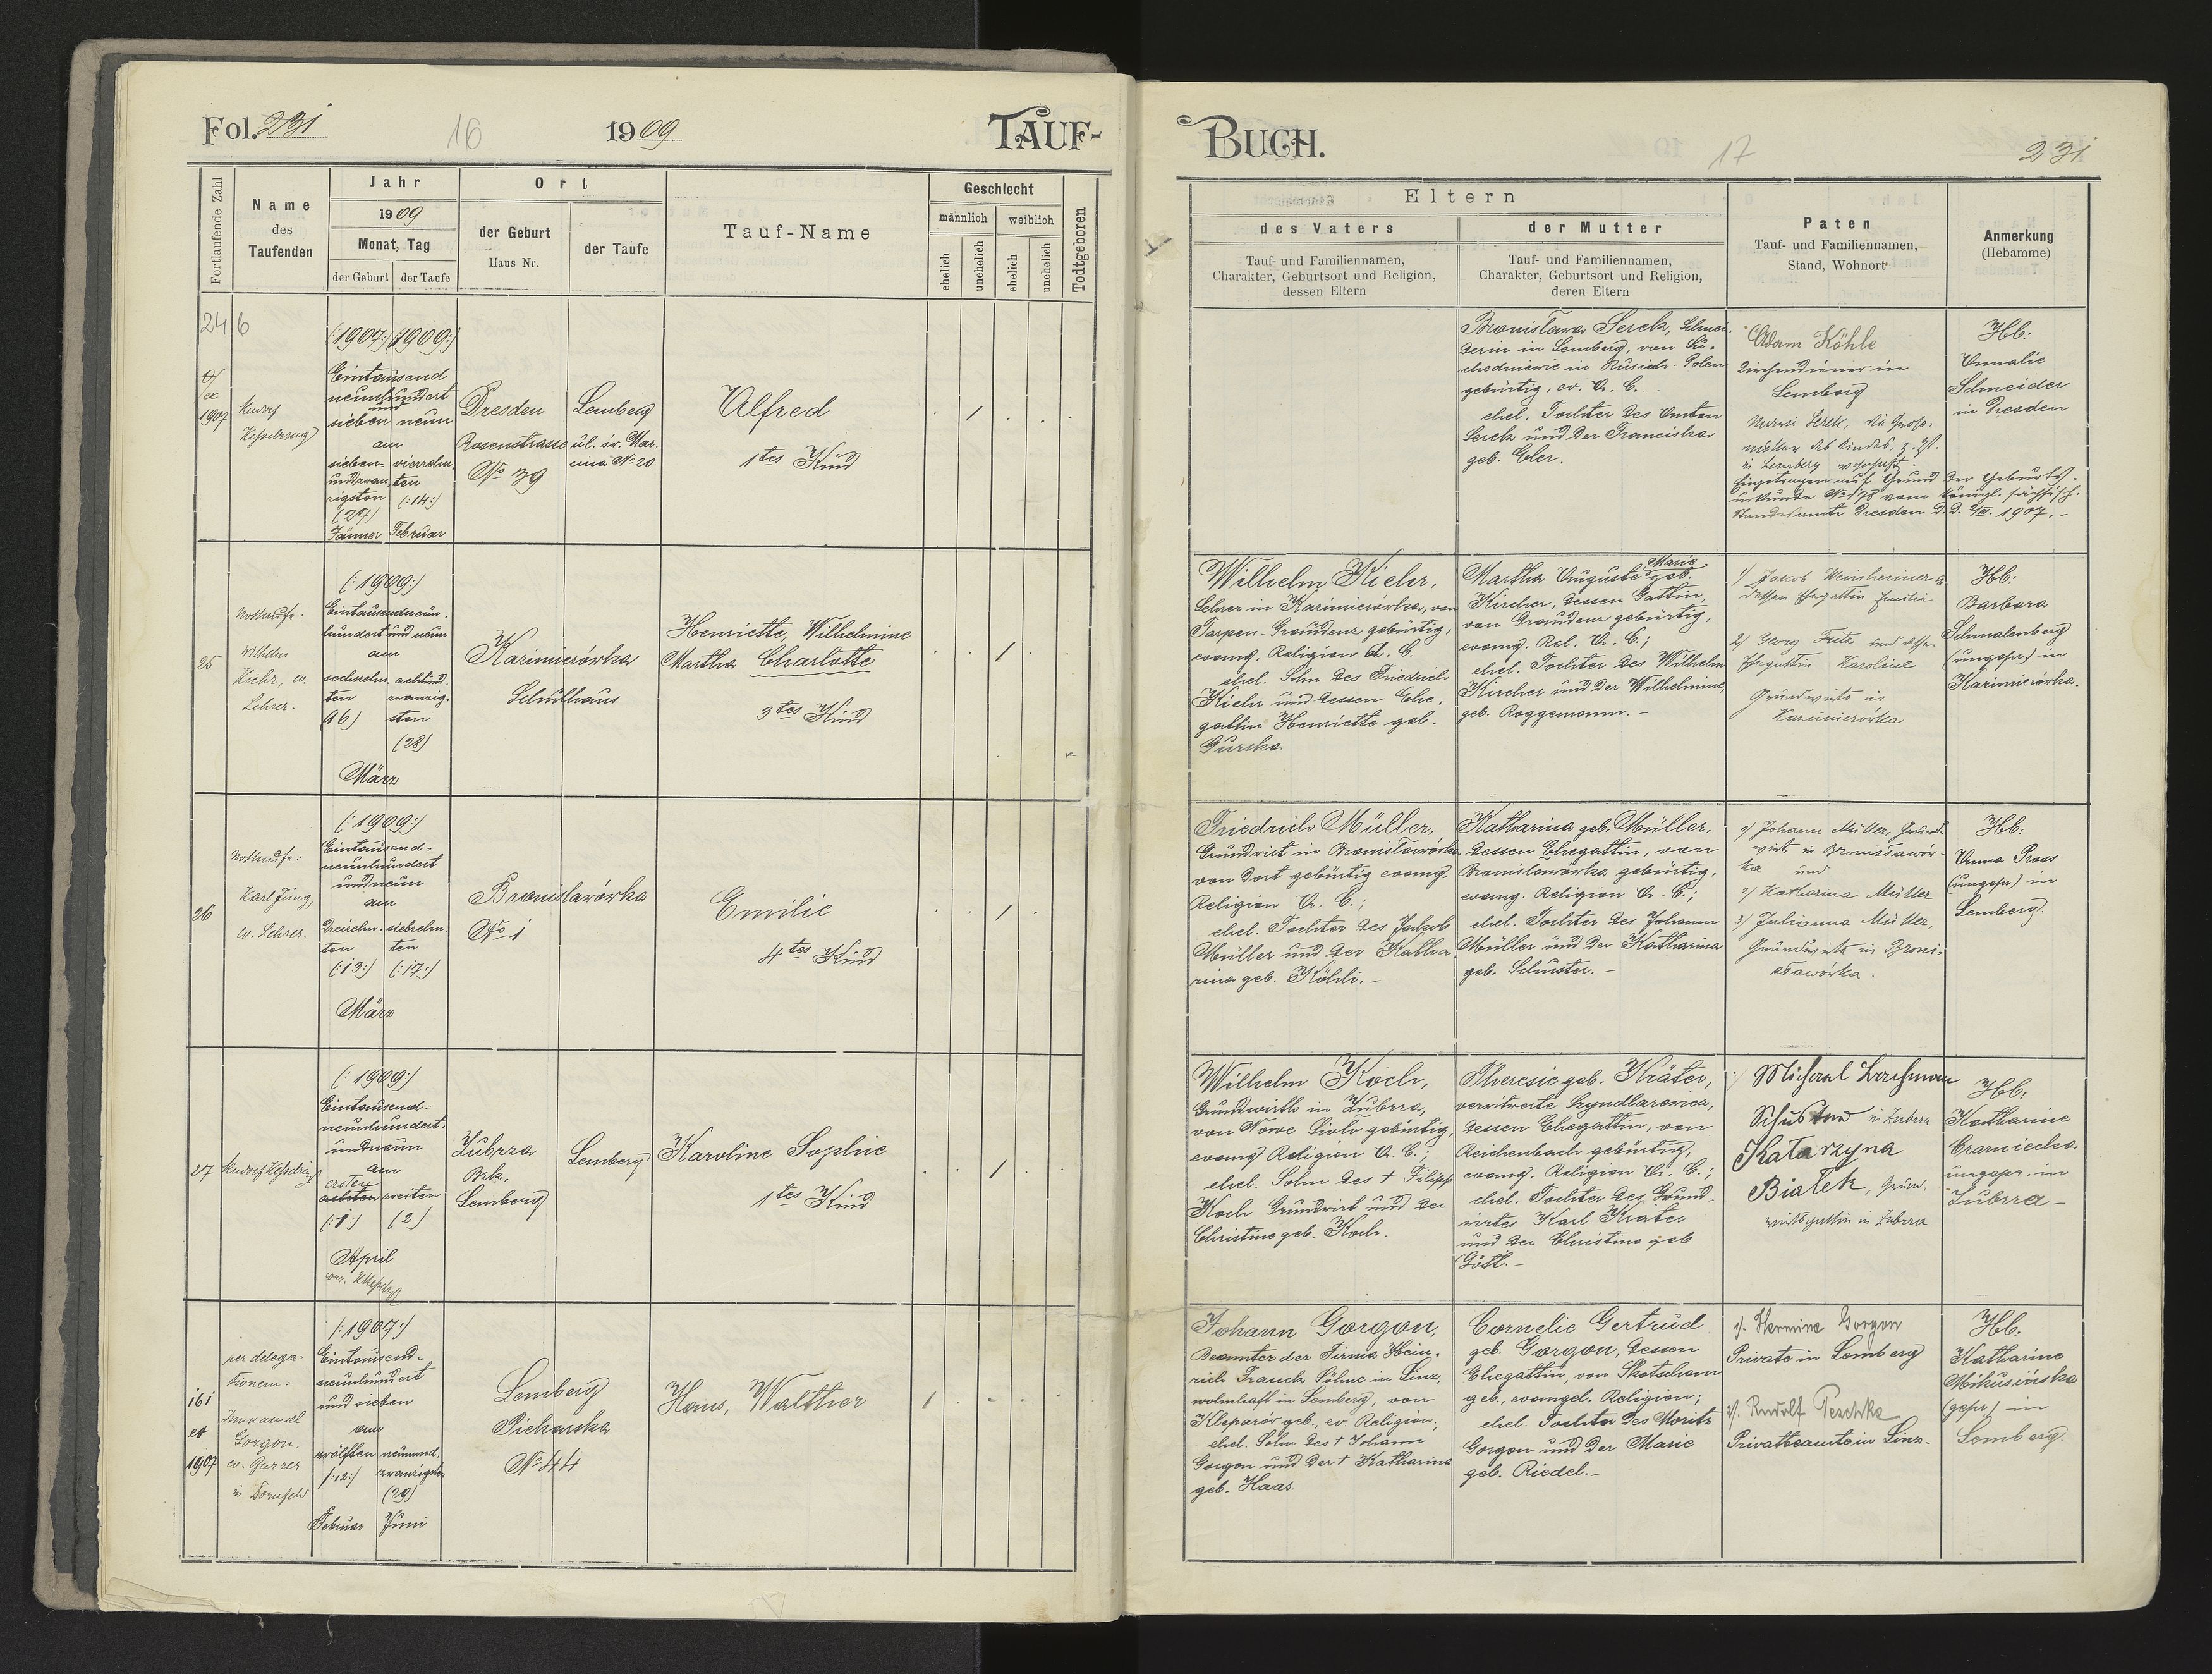 Fol. 231
16
1909
TAUF-
BUCH.
17
231
Fortlaufende Zahl
Name
des
Taufenden
Jahr
1909
Monat, Tag
der Geburt
der Taufe
Ort
der Geburt
Haus Nr.
der Taufe
Tauf-Name
Geschlecht
männlich
weiblich
ehelich
unehelich
ehelich
unehelich
Todtgeboren
Eltern
des Vaters
Tauf- und Familiennamen,
Charakter, Geburtsort und Religion,
dessen Eltern
der Mutter
Tauf- und Familiennamen,
Charakter, Geburtsort und Religion,
deren Eltern
Paten
Tauf- und Familiennamen,
Stand, Wohnort
Anmerkung
(Hebamme)
246
1907
Rudolf
Kesselring
(:1907:) (1909:)
Eintausend
neunhundert
und
sieben neun
am
sieben- vierzehn
undzwan- ten
zigsten (:14:)
(27)
Jänner Februar
Dresden
Rosenstrasse
No 39
Lemberg
ul. św. Mar-
cina No 20
Alfred
1tes Kind
Bronisława Serek, Schnei-
derin in Lemberg, von Su-
chedniewie in Rusisch-Polen
gebürtig, ev. A. C.
ehel. Tochter des Anton
Serek und der Franciska
geb. Eler.
Adam Köhle
Kirchendiener in
Lemberg
Maria Serek, die Gross-
mutter des Kindes, z. Zt.
in Lemberg wohnhaft
Eingetragen auf Grund der Geburts-
urkunde No 178 vom königl. sächsisch.
Standesamte Dresden D.D. 1907.-
Hb:
Annalie
Schneider
in Dresden
25
Nottaufe:
Wilhelm
Kiehr, ev.
Lehrer.
(:1909:)
Eintausendneun-
hundert und neun
am
sechszehn- achtund-
ten zwanzig-
(16) sten
(28)
März
Kazimierówka
Schulhaus
Henriette, Wilhelmine
Martha Charlotte
3tes Kind
Wilhelm Kiehr,
Lehrer in Kazimierówka, von
Tarpen-Graudenz gebürtig,
evang. Religion A. C.
ehel. Sohn des Friedrich
Kiehr und dessen Ehe-
gattin Henriette geb.
Gurska
Martha Auguste Marie geb.
Kircher, dessen Gattin,
von Graudenz gebürtig,
evang. Rel. A. C.;
ehel. Tochter des Wilhelm
Kircher und der Wilhelmine,
geb. Roggemann.-
1) Jakob Weinheimer u.
dessen Ehegattin Emilie
2) Georg Fritz und dessen
Ehegattin Karoline
Grundwirte in
Kazimierówka
Hb:
Barbara
Schmalenberg
(ungepr.) in
Kazimierówka.
26
Nottaufe:
Karl Jung,
ev. Lehrer.
(:1909:)
Eintausend-
neunhundert
und neun
am
Dreizehn- siebzehn-
ten ten
(:13:) (:17:)
März
Bronisławówka
No 1
Emilie
4tes Kind
Friedrich Müller,
Grundwirt in Bronisławówka
von dort gebürtig evang.
Religion A. C.;
ehel. Tochter des Jakob
Müller und der Katha-
rina geb. Köhli.-
Katharina geb. Müller,
dessen Ehegattin, von
Bronisławówka gebürtig,
evang. Religion A. C.;
ehel. Tochter des Johann
Müller und der Katharina
geb. Schuster.-
1) Johann Müller, Grund-
wirt in Bronisławów-
ka und
2) Katharina Müller
3) Julianna Müller,
Grundwirte in Broni-
sławówka.
Hb:
Anna Pross
(ungepr.) in
Lemberg.
27
Rudolf Kesselring
(:1909:)
Eintausend-
neunhundert
und neun
am
ersten
achten zweiten
(:1:) (2)
April
Zubrza
Bzk.
Lemberg
Lemberg
Karoline Sophie
1tes Kind
Wilhelm Koch,
Grundwirth in Zubrza,
von Nowe Sioło gebürtig,
evang Religion A. C.;
ehel. Sohn des † Filipp
Koch Grundwirt und der
Christine geb. Koch.
Theresie geb. Kräter,
verwitwete Szyndlarewicz,
dessen Ehegattin, von
Reichenbach gebürtig,
evang. Religion A. C.;
ehel. Tochter des Grund-
wirtes Karl Kräter
und der Christine geb
Göttl.-
Schuster in Zubrza
Katarzyna
Białek, Grund-
wirtsgattin in Zubrza
Hb:
Katharine
Craniecka
ungepr. in
Zubrza-
161
et
1907
per delega-
tionem:
Immanuel
Gorgon,
ev. Pfarrer
in Dornfeld
(:1907:)
Eintausend-
neunhundert
und sieben
am
zwölften neunund-
(:12:) zwanzigsten
(29)
Februar Juni
Lemberg
Piekarska
No 44
Hans, Walther
Johann Gorgon,
Beamter der Firma Hein-
rich Franck Söhne in Linz,
wohnhaft in Lemberg, von
Kleparów geb., ev. Religion;
ehel. Sohn des † Johann
Gorgon und der † Katharina
geb. Haas.
Cornelie Gertrud
geb. Gorgon, dessen
Ehegattin, von Skotschau
geb., evangel. Religion;
ehel. Tochter des Moritz
Gorgon und der Marie
geb. Riedel.-
1). Hermine Gorgon
Private in Lemberg
2). Rudolf Peschke
Privatbeamte in Linz-
Hb:
Katharine
Mikusińska
(gepr.) in
Lemberg